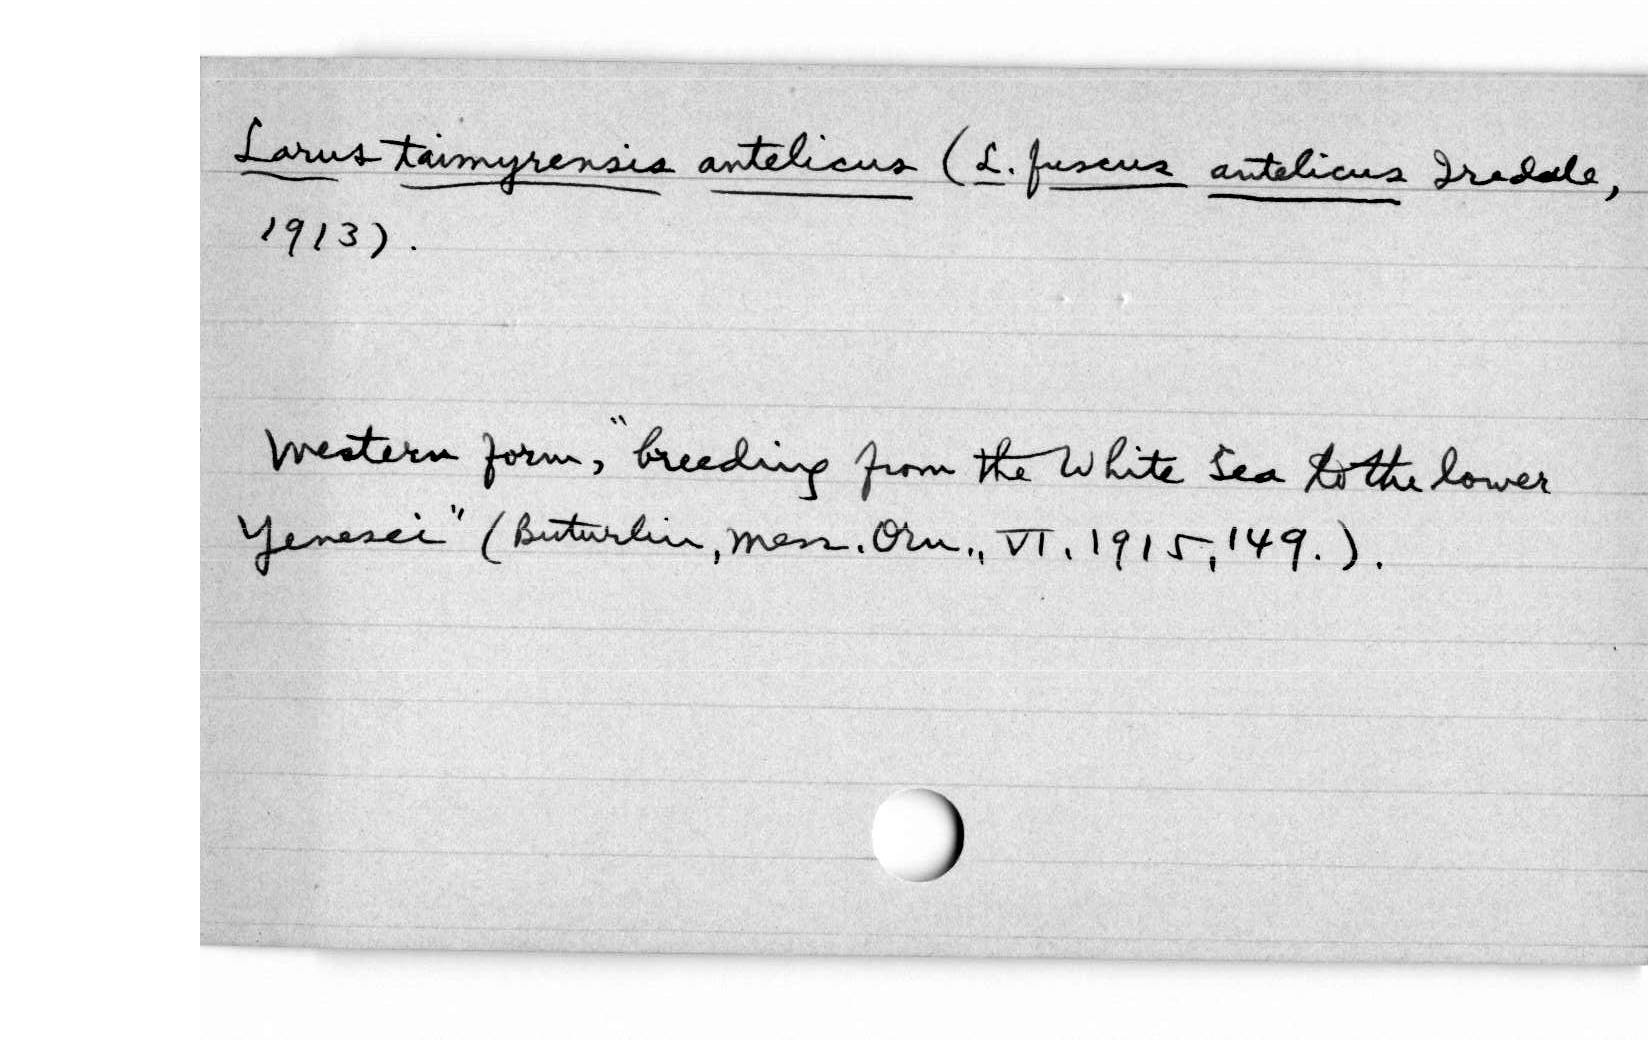 Larus taimyrensis antelicus (L. fuscus antelicus Iredale,
1913).
Western form, "breeding from the White Sea to the lower
Yenesei" (Buturlin, Mess. Orn., VI. 1915, 149.).